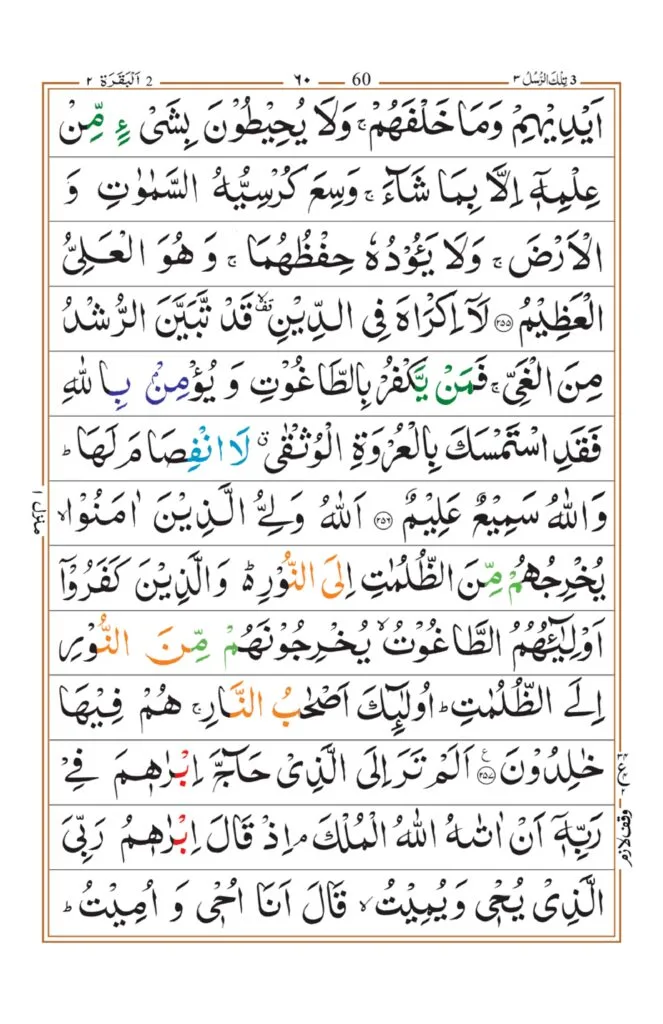 3 تِلْكَ الرُّسُلُ ٣
60
٦٠
2 اَلْبَقَرَة ٢
اَيْدِيْهِمْ وَمَا خَلْفَهُمْ ۚ وَلَا يُحِيْطُوْنَ بِشَیْءٍ مِّنْ
عِلْمِهٖۤ اِلَّا بِمَا شَآءَ ۚ وَسِعَ كُرْسِيُّهُ السَّمٰوٰتِ وَ
الْاَرْضَ ۚ وَلَا يَـُٔوْدُهٗ حِفْظُهُمَا ۚ وَ هُوَ الْعَلِیُّ
الْعَظِيْمُ ۝٢٥٥ لَاۤ اِكْرَاهَ فِی الدِّيْنِ ۙقف قَدْ تَّبَيَّنَ الرُّشْدُ
مِنَ الْغَیِّ ۚ فَمَنْ يَّكْفُرْ بِالطَّاغُوْتِ وَ يُؤْمِنْۢ بِاللّٰهِ
فَقَدِ اسْتَمْسَكَ بِالْعُرْوَةِ الْوُثْقٰی ۗ لَا انْفِصَامَ لَهَا ؕ
وَاللّٰهُ سَمِيْعٌ عَلِيْمٌ ۝٢٥٦ اَللّٰهُ وَلِیُّ الَّذِيْنَ اٰمَنُوْا ۙ
يُخْرِجُهُمْ مِّنَ الظُّلُمٰتِ اِلَی النُّوْرِ ؕ وَالَّذِيْنَ كَفَرُوْۤا
اَوْلِيٰٓـُٔهُمُ الطَّاغُوْتُ ۙ يُخْرِجُوْنَهُمْ مِّنَ النُّوْرِ
اِلَی الظُّلُمٰتِ ؕ اُولٰٓئِكَ اَصْحٰبُ النَّارِ ۚ هُمْ فِيْهَا
خٰلِدُوْنَ ۝٢٥٧ ع اَلَمْ تَرَ اِلَی الَّذِیْ حَآجَّ اِبْرٰهٖمَ فِیْ
رَبِّهٖۤ اَنْ اٰتٰىهُ اللّٰهُ الْمُلْكَ ۘ اِذْ قَالَ اِبْرٰهٖمُ رَبِّیَ
الَّذِیْ يُحْیٖ وَيُمِيْتُ ۙ قَالَ اَنَا اُحْیٖ وَ اُمِيْتُ ؕ
منزل ١
وقف لازم